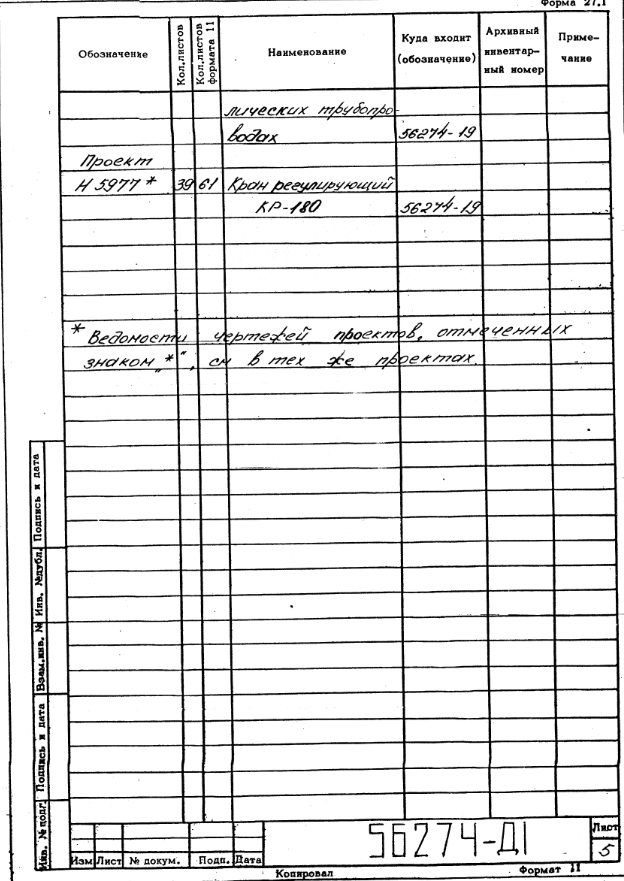 Форма 27.1
Обозначение
Кол.листов
Кол.листов формата 11
Наименование
Куда входит (обозначение)
Архивный инвентарный номер
Примечание
лических трубопро-
водах 56274-19
Проект
Н 5977 * 39 61 Кран регулирующий
КР-180 56274-19
* Ведомости чертежей проектов, отмеченных
знаком „*", см в тех же проектах.
Подпись и дата
Инв. №дубл.
Взам.инв. №
Подпись и дата
Инв. № подл.
56274-Д1
Лист
5
Изм Лист № докум. Подп. Дата
Копировал
Формат 11